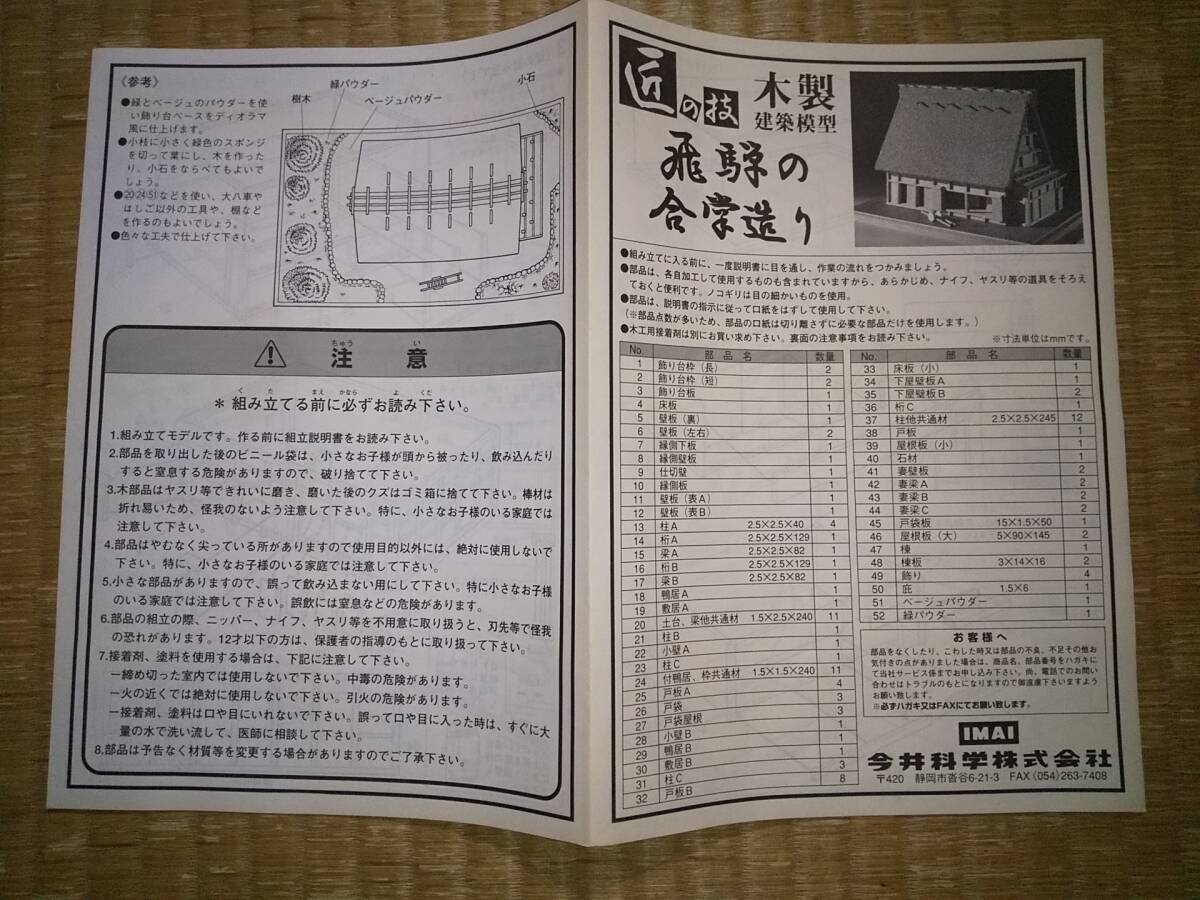 《参考》
●緑とベージュのパウダーを使
い飾り台ベースをディオラマ
風に仕上げます。
●小枝に小さく緑色のスポンジ
を切って葉にし、木を作った
り、小石をならべてもよいで
しょう。
●20・24・51などを使い、大八車や
はしご以外の工具や、棚など
を作るのもよいでしょう。
●色々な工夫で仕上げて下さい。
樹木
緑パウダー
ベージュパウダー
小石
ちゅう い
注意
く た まえ かなら よ くだ
＊組み立てる前に必ずお読み下さい。
1.組み立てモデルです。作る前に組立説明書をお読み下さい。
2.部品を取り出した後のビニール袋は、小さなお子様が頭から被ったり、飲み込んだり
すると窒息する危険がありますので、破り捨てて下さい。
3.木部品はヤスリ等できれいに磨き、磨いた後のクズはゴミ箱に捨てて下さい。棒材は
折れ易いため、怪我のないよう注意して下さい。特に、小さなお子様のいる家庭では
注意して下さい。
4.部品はやむなく尖っている所がありますので使用目的以外には、絶対に使用しないで
下さい。特に、小さなお子様のいる家庭では注意して下さい。
5.小さな部品がありますので、誤って飲み込まない用にして下さい。特に小さなお子様
のいる家庭では注意して下さい。誤飲には窒息などの危険があります。
6.部品の組立の際、ニッパー、ナイフ、ヤスリ等を不用意に取り扱うと、刃先等で怪我
の恐れがあります。12才以下の方は、保護者の指導のもとに取り扱って下さい。
7.接着剤、塗料を使用する場合は、下記に注意して下さい。
ー締め切った室内では使用しないで下さい。中毒の危険があります。
ー火の近くでは絶対に使用しないで下さい。引火の危険があります。
ー接着剤、塗料は口や目にいれないで下さい。誤って口や目に入った時は、すぐに大
量の水で洗い流して、医師に相談して下さい。
8.部品は予告なく材質等を変更する場合がありますのでご了承下さい。
匠の技
木製
建築模型
飛騨の
合掌造り
●組み立てに入る前に、一度説明書に目を通し、作業の流れをつかみましょう。
●部品は、各自加工して使用するものも含まれていますから、あらかじめ、ナイフ、ヤスリ等の道具をそろえ
ておくと便利です。ノコギリは目の細かいものを使用。
●部品は、説明書の指示に従って口紙をはずして使用して下さい。
(※部品点数が多いため、部品の口紙は切り離さずに必要な部品だけを使用します。)
●木工用接着剤は別にお買い求め下さい。裏面の注意事項をお読み下さい。
※寸法単位はmmです。
No. 部品名 数量
1 飾り台枠（長） 2
2 飾り台枠（短） 2
3 飾り台板 1
4 床板 1
5 壁板（裏） 1
6 壁板（左右） 2
7 縁側下板 1
8 縁側壁板 1
9 仕切壁 1
10 縁側板 1
11 壁板（表A） 1
12 壁板（表B） 1
13 柱A 2.5×2.5×40 4
14 桁A 2.5×2.5×129 1
15 梁A 2.5×2.5×82 1
16 桁B 2.5×2.5×129 1
17 梁B 2.5×2.5×82 1
18 鴨居A 1
19 敷居A 1
20 土台、梁他共通材 1.5×2.5×240 11
21 柱B 1
22 小壁A 1
23 柱C 1
24 付鴨居、枠共通材 1.5×1.5×240 11
25 戸板A 4
26 戸袋 3
27 戸袋屋根 1
28 小壁B 1
29 鴨居B 1
30 敷居B 3
31 柱C 8
32 戸板B
No. 部品名 数量
33 床板（小） 1
34 下屋壁板A 1
35 下屋壁板B 2
36 桁C 1
37 柱他共通材 2.5×2.5×245 12
38 戸板 1
39 屋根板（小） 1
40 石材 1
41 妻壁板 2
42 妻梁A 2
43 妻梁B 2
44 妻梁C 1
45 戸袋板 15×1.5×50 1
46 屋根板（大） 5×90×145 2
47 棟 1
48 棟板 3×14×16 2
49 飾り 4
50 庇 1.5×6 1
51 ベージュパウダー 1
52 緑パウダー 1
お客様へ
部品をなくしたり、こわした時又は部品の不良、不足その他お
気付きの点がありました場合は、商品名、部品番号をハガキに
て当社サービス係までお申し込み下さい。尚、電話でのお問い
合わせはトラブルのもとになりますので御遠慮下さいますよう
お願い致します。
※必ずハガキ又はFAXにてお願い致します。
IMAI
今井科学株式会社
〒420 静岡市沓谷6-21-3 FAX(054)263-7408